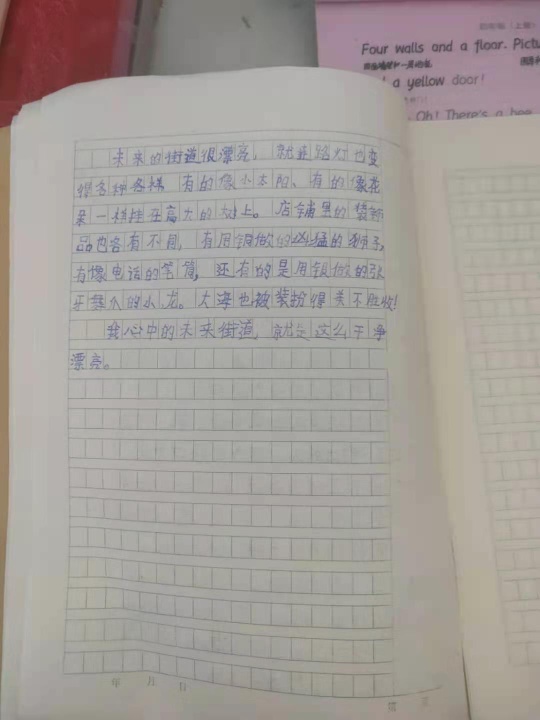 四年级(上册)
Four walls and a floor. Pictu
a yellow door!
Oh! There's a bee
未来的街道很漂亮,就连路灯也变
得各种各样,有的像小太阳、有的像花
朵一样挂在高大的树上。店铺里的装饰
品也各有不同,有用铜做的凶猛的狮子,
有像电话的笔筒,还有的是用银做的张
牙舞爪的小龙。大海也被装扮得美不胜收!
我心中的未来街道,就是这么干净
漂亮。
年 月 日